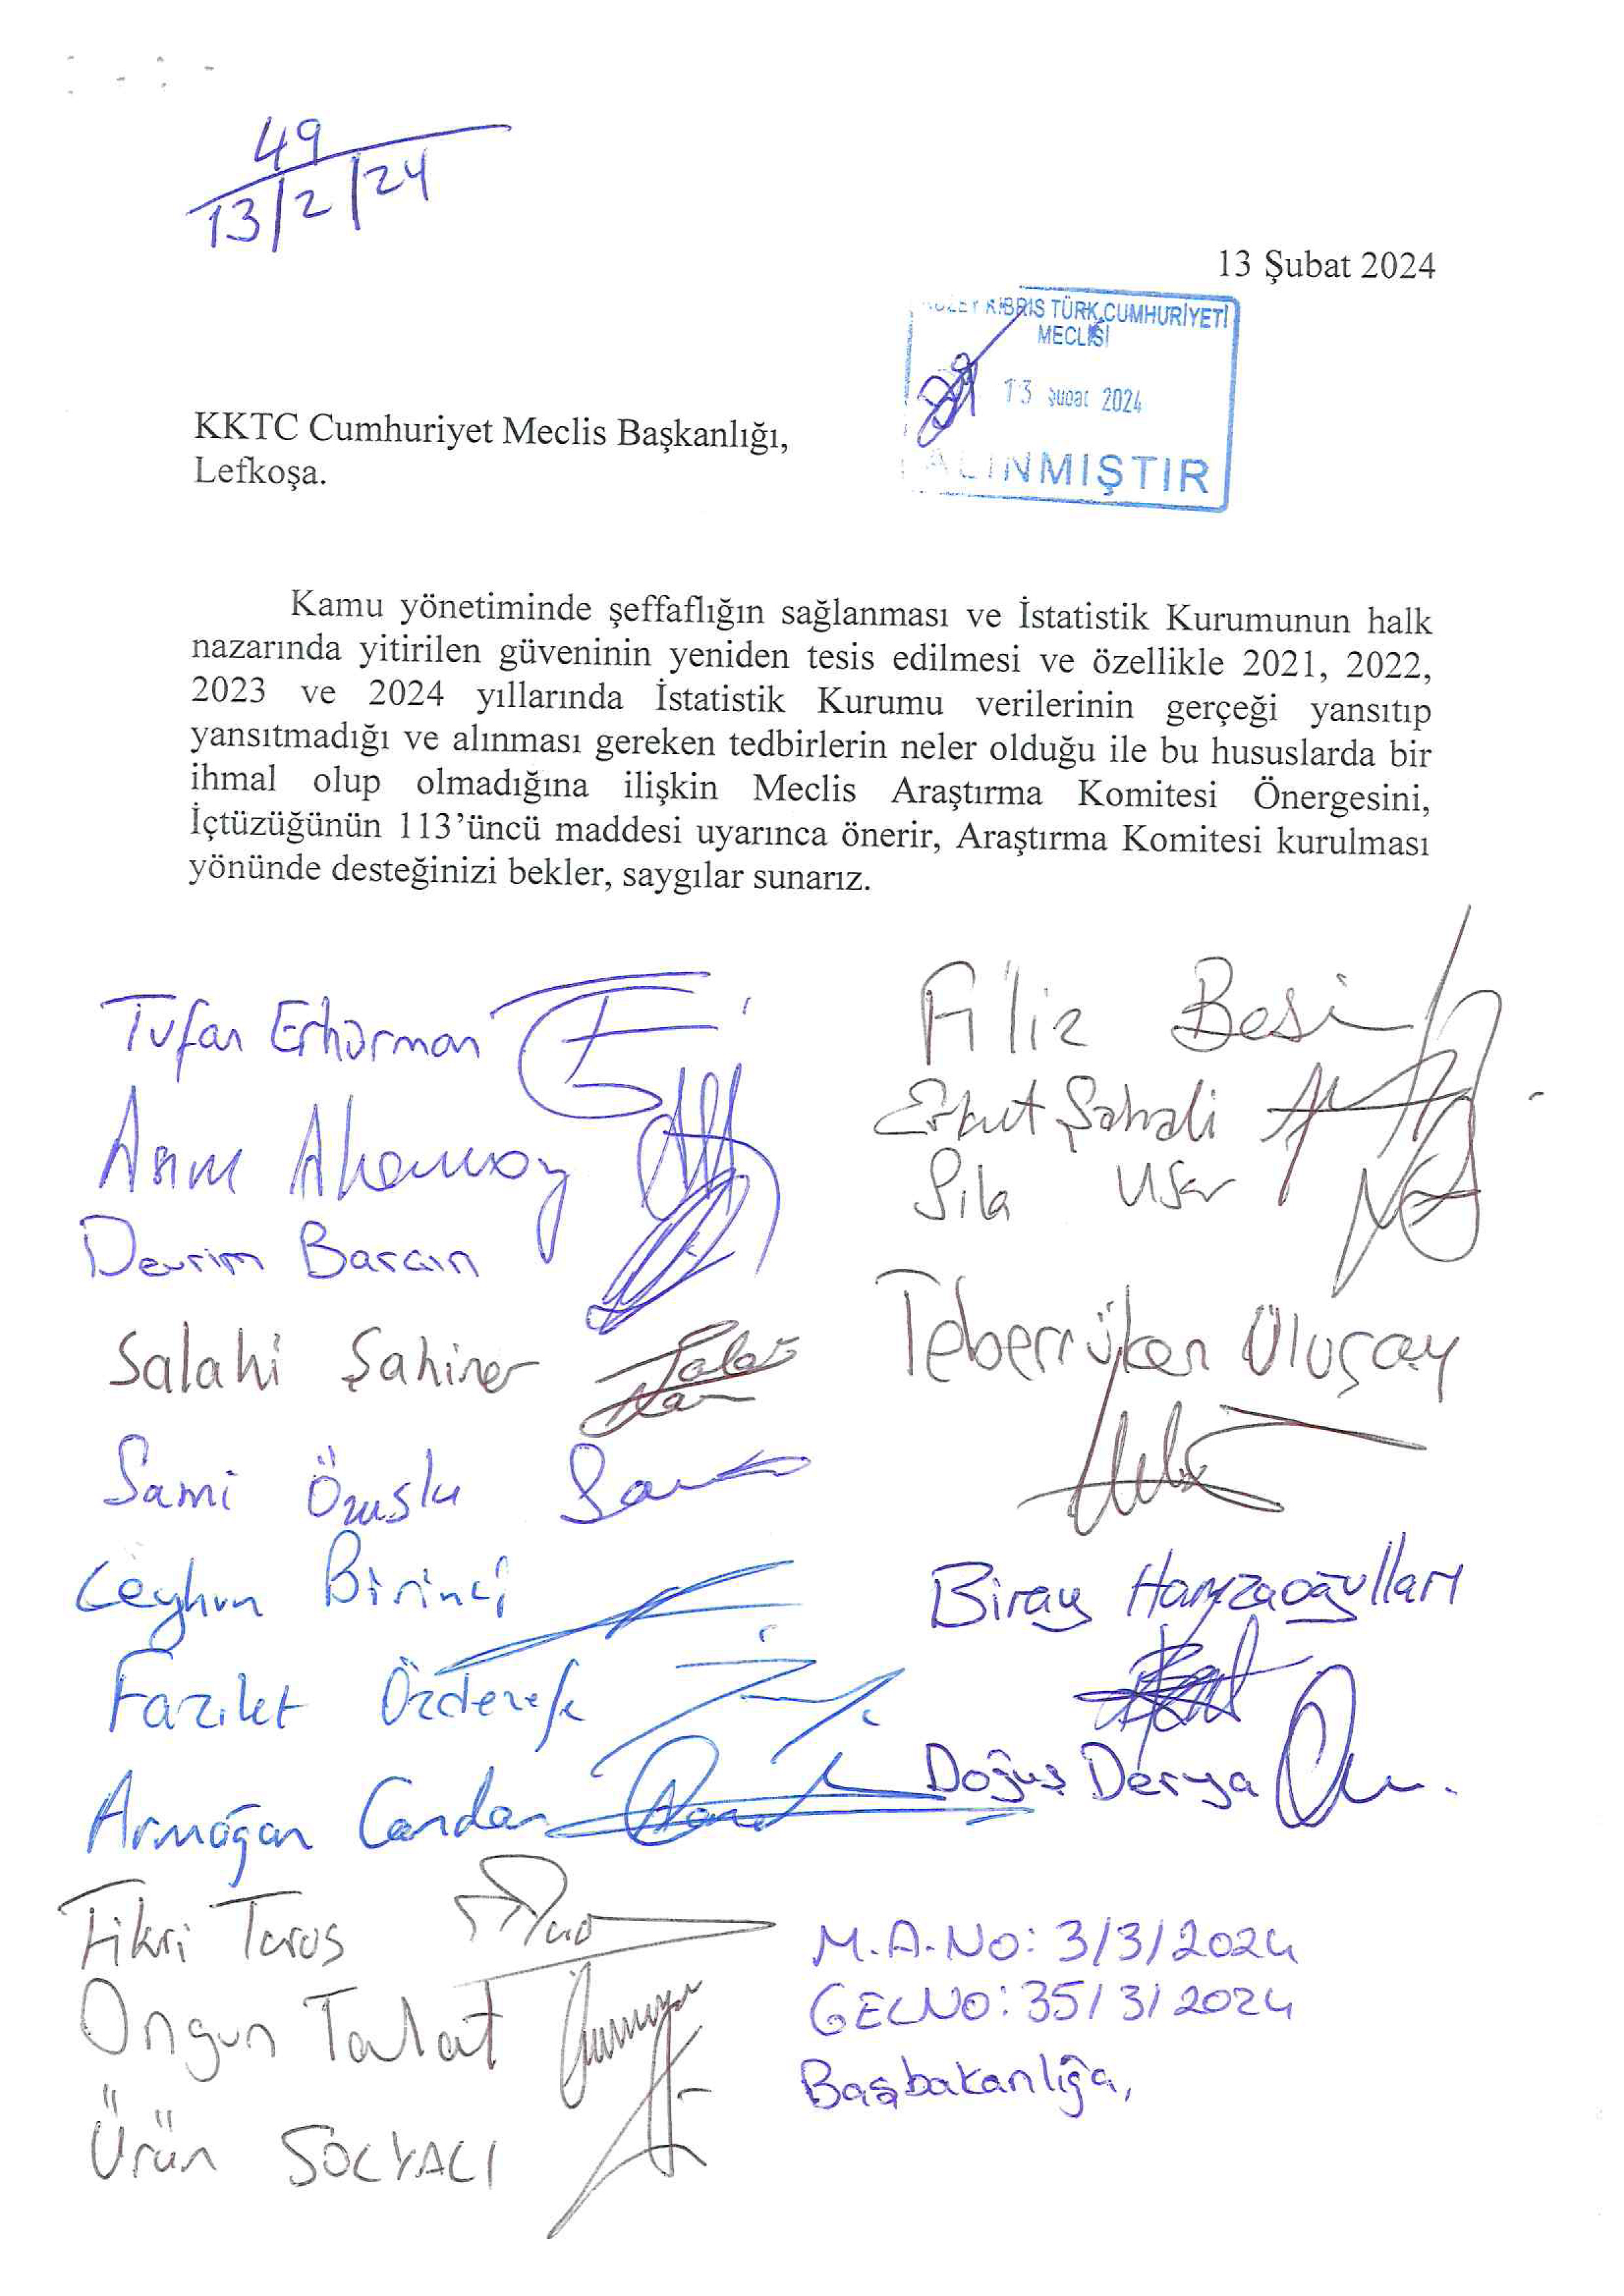 49
13/2/24
13 Şubat 2024
KUZEY KIBRIS TÜRK CUMHURİYETİ
MECLİSİ
13 Şubat 2024
ALINMIŞTIR
KKTC Cumhuriyet Meclis Başkanlığı,
Lefkoşa.
Kamu yönetiminde şeffaflığın sağlanması ve İstatistik Kurumunun halk
nazarında yitirilen güveninin yeniden tesis edilmesi ve özellikle 2021, 2022,
2023 ve 2024 yıllarında İstatistik Kurumu verilerinin gerçeği yansıtıp
yansıtmadığı ve alınması gereken tedbirlerin neler olduğu ile bu hususlarda bir
ihmal olup olmadığına ilişkin Meclis Araştırma Komitesi Önergesini,
İçtüzüğünün 113’üncü maddesi uyarınca önerir, Araştırma Komitesi kurulması
yönünde desteğinizi bekler, saygılar sunarız.
Tufan Erhürman
Asım Akansoy
Devrim Barçın
Salahi Şahiner
Sami Özuslu
Ceyhun Birinci
Fazilet Özdenefe
Armağan Candan
Fikri Toros
Ongun Talat
Ürün SOLYALI
Filiz Besim
Erkut Şahali
Sıla Usar
Teberrüken Uluçay
Biray Hamzaoğulları
Doğuş Derya
M.A.No: 3/3/2024
GELNO: 35/3/2024
Başbakanlığa,